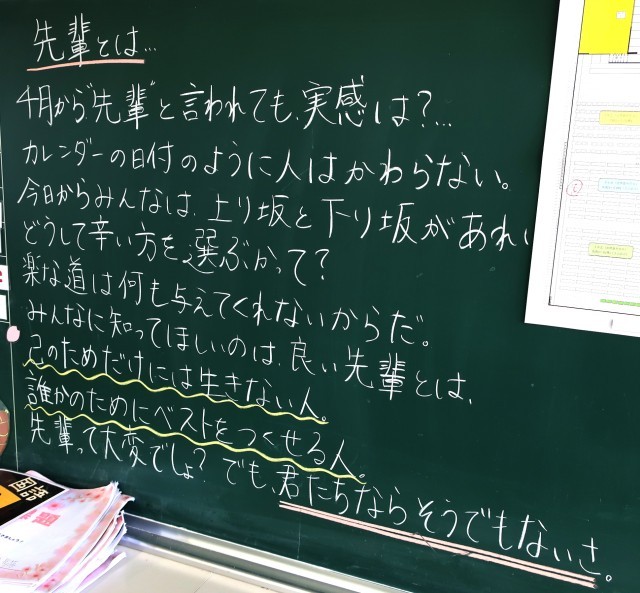 先輩とは…
4月から"先輩"と言われても、実感は?…
カレンダーの日付のように人はかわらない。
今日からみんなは、上り坂と下り坂があれ
どうして辛い方を選ぶかって?
楽な道は何も与えてくれないからだ。
みんなに知ってほしいのは、良い先輩とは、
己のためだけには生きない人。
誰かのためにベストをつくせる人。
先輩って大変でしょ?でも、君たちならそうでもないさ。